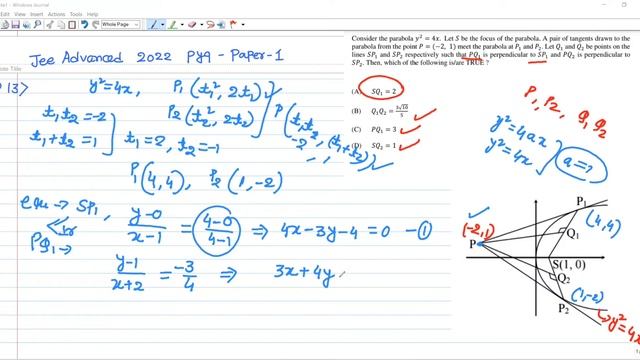 Windows Journal
Jee Advanced 2022 PYQ - Paper-1
13)
y²=4x, P₁(t₁², 2t₁)
P₂(t₂², 2t₂)
P(t₁t₂, (t₁+t₂))
-2
t₁t₂ = -2
t₁+t₂ = 1
t₁=2, t₂=-1
P₁(4,4), P₂(1,-2)
Eqn → SP₁
y-0/x-1 = 4-0/4-1 ⇒ 4x-3y-4=0 -①
PQ₁→
y-1/x+2 = -3/4 ⇒ 3x+4y
Consider the parabola y² = 4x. Let S be the focus of the parabola. A pair of tangents drawn to the
parabola from the point P = (−2, 1) meet the parabola at P₁ and P₂. Let Q₁ and Q₂ be points on the
lines SP₁ and SP₂ respectively such that PQ₁ is perpendicular to SP₁ and PQ₂ is perpendicular to
SP₂. Then, which of the following is/are TRUE ?
(A) SQ₁ = 2
(B) Q₁Q₂ = 3√10/5
(C) PQ₁ = 3
(D) SQ₂ = 1
P₁ P₂, Q₁ Q₂
y²=4ax
y²=4x
a=1
P₁
(4,4)
(-2,1)
P
Q₁
S(1, 0)
Q₂
(1,-2)
P₂
y²=4x